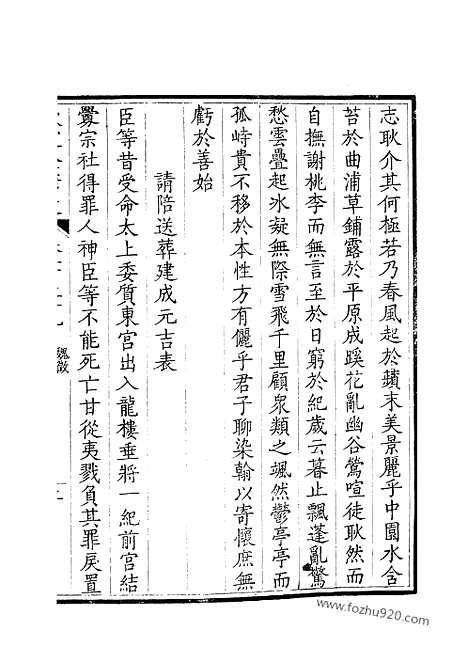 志耿介其何極若乃春風起於蘋末美景麗乎中園水含
苔於曲浦草鋪露於平原成蹊花亂幽谷鶯喧徒耿然而
自撫謝桃李而無言至於日窮於紀歲云暮止飄蓬亂驚
愁雲疊起冰凝無際雪飛千里顧衆類之颯然鬱亭亭而
孤峙貴不移於本性方有儷乎君子聊染翰以寄懷庶無
虧於善始
請陪送葬建成元吉表
臣等昔受命太上委質東宮出入龍樓垂將一紀前宮結
釁宗社得罪人神臣等不能死亡甘從夷戮負其罪戾置
魏徵
www.fozhu920.com